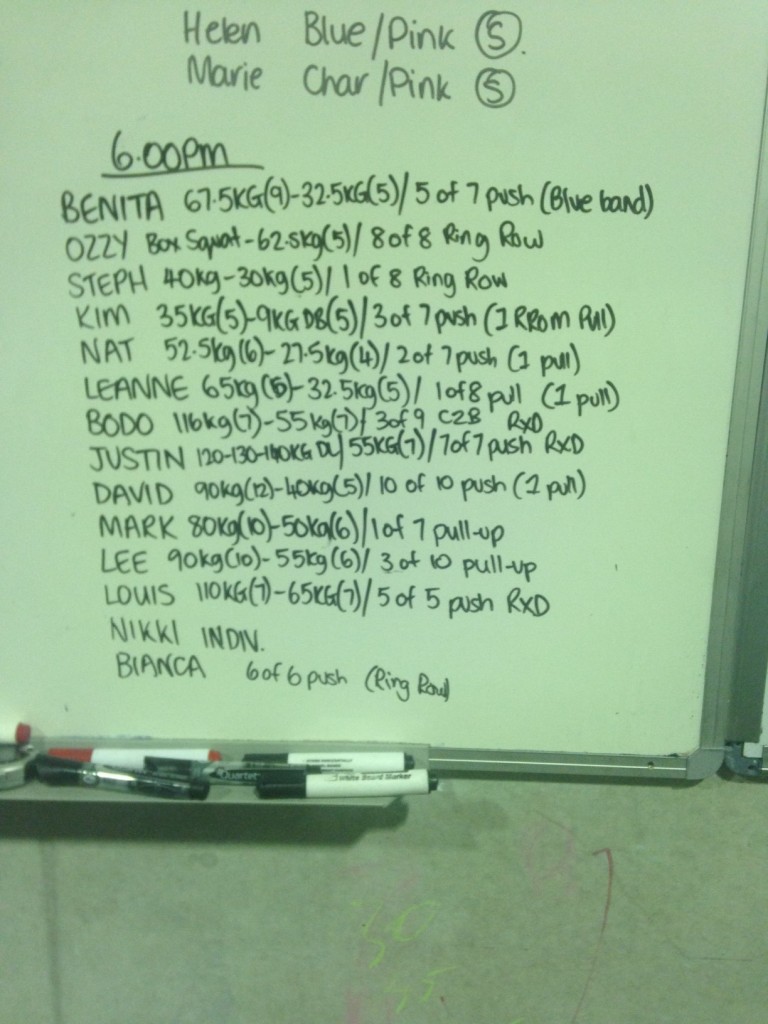 Helen Blue/Pink (5).
Marie Char/Pink (5)
6.00pm
BENITA 67.5KG(9)-32.5KG(5)/ 5 of 7 push (Blue band)
OZZY Box Squat-62.5kg(5)/ 8 of 8 Ring Row
STEPH 40kg-30kg(5)/ 1 of 8 Ring Row
KIM 35KG(5)-9KG DB(5)/ 3 of 7 push (1 RRom Pull)
NAT 52.5kg(6)-27.5kg(4)/ 2 of 7 push (1 pull)
LEANNE 65kg(5)-32.5kg(5)/ 1 of 8 pull (1 pull)
BODO 116kg(7)-55kg(7)/ 3 of 9 C2B RXD
JUSTIN 120-130-140KG DL/ 55KG(7)/ 7 of 7 push RXD
DAVID 90kg(12)-40kg(5)/ 10 of 10 push (1 pull)
MARK 80kg(10)-50kg(6)/ 1 of 7 pull-up
LEE 90kg(10)-55kg(6)/ 3 of 10 pull-up
LOUIS 110KG(7)-65KG(7)/ 5 of 5 push RXD
NIKKI INDIV.
BIANCA 6 of 6 push (Ring Row)
Quartet
White Board Marker